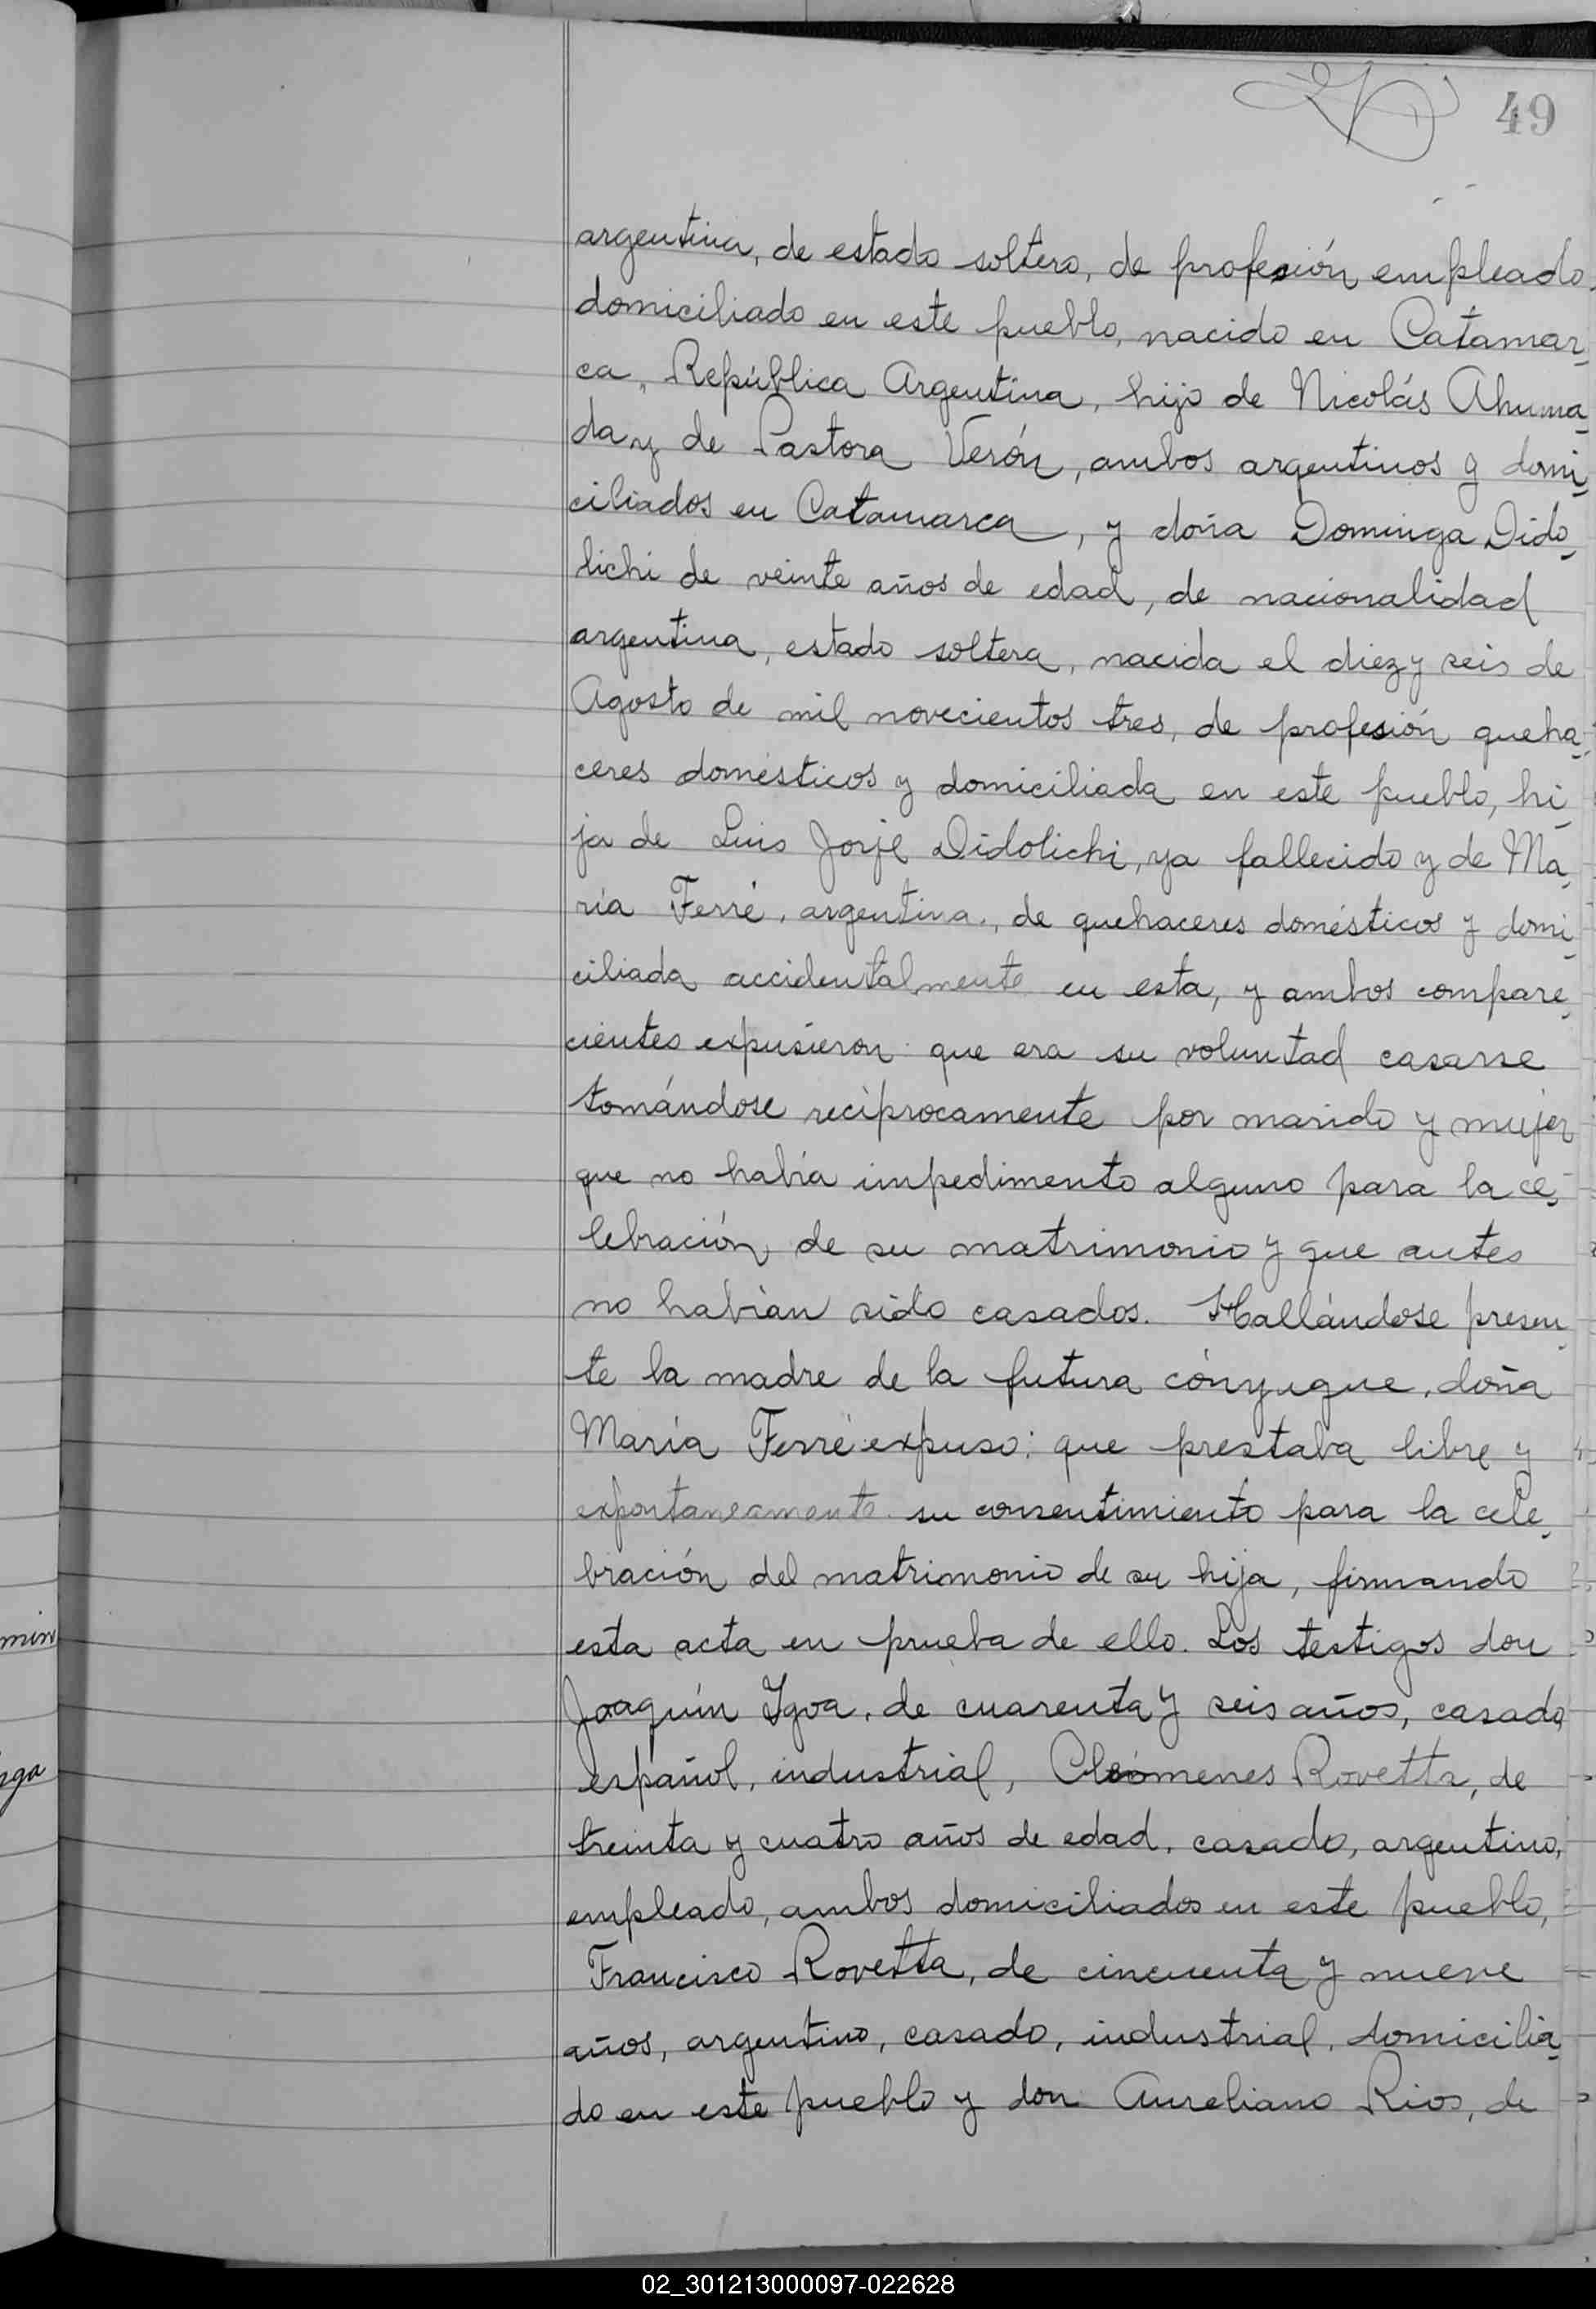 49
argentina, de estado soltero, de profesión empleado,
domiciliado en este pueblo, nacido en Catamar-
ca, República Argentina, hijo de Nicolás Ahuma-
da y de Pastora Verón, ambos argentinos y domi-
ciliados en Catamarca, y doña Dominga Dido-
lichi de veinte años de edad, de nacionalidad
argentina, estado soltera, nacida el diez y seis de
Agosto de mil novecientos tres, de profesión queha-
ceres domésticos y domiciliada en este pueblo, hi-
ja de Luis Jorje Didolichi, ya fallecido y de Ma-
ría Ferré, argentina, de quehaceres domésticos y domi-
ciliada accidentalmente en esta, y ambos compare-
cientes expusieron: que era su voluntad casarse
tomándose recíprocamente por marido y mujer
que no había impedimento alguno para la ce-
lebración de su matrimonio y que antes
no habían sido casados. Hallándose presen-
te la madre de la futura cónyugue, doña
María Ferré expuso: que prestaba libre y
expontaneamente su consentimiento para la cele-
bración del matrimonio de su hija, firmando
esta acta en prueba de ello. Los testigos don
min
Joaquín Ygoa, de cuarenta y seis años, casado,
español, industrial, Cleómenes Rovetta, de
treinta y cuatro años de edad, casado, argentino,
empleado, ambos domiciliados en este pueblo,
Francisco Rovetta, de cincuenta y nueve
años, argentino, casado, industrial, domicilia-
do en este pueblo y don Aureliano Rios, de
02_301213000097-022628